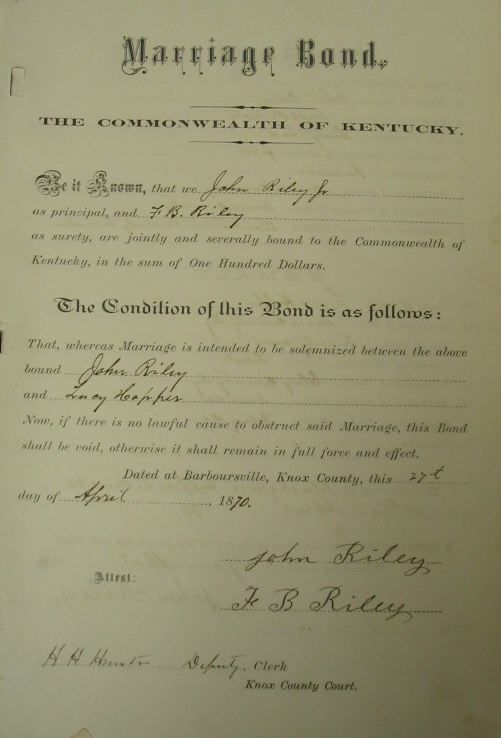 Marriage Bond.
THE COMMONWEALTH OF KENTUCKY.
Be it Known, that we John Riley Jr
as principal, and F. B. Riley
as surety, are jointly and severally bound to the Commonwealth of
Kentucky, in the sum of One Hundred Dollars.
The Condition of this Bond is as follows:
That, whereas Marriage is intended to be solemnized between the above
bound John Riley
and Lucy Hopper
Now, if there is no lawful cause to obstruct said Marriage, this Bond
shall be void, otherwise it shall remain in full force and effect.
Dated at Barboursville, Knox County, this 27th
day of April, 1870.
John Riley
Attest:
F B Riley
H H Deputy, Clerk
Knox County Court.